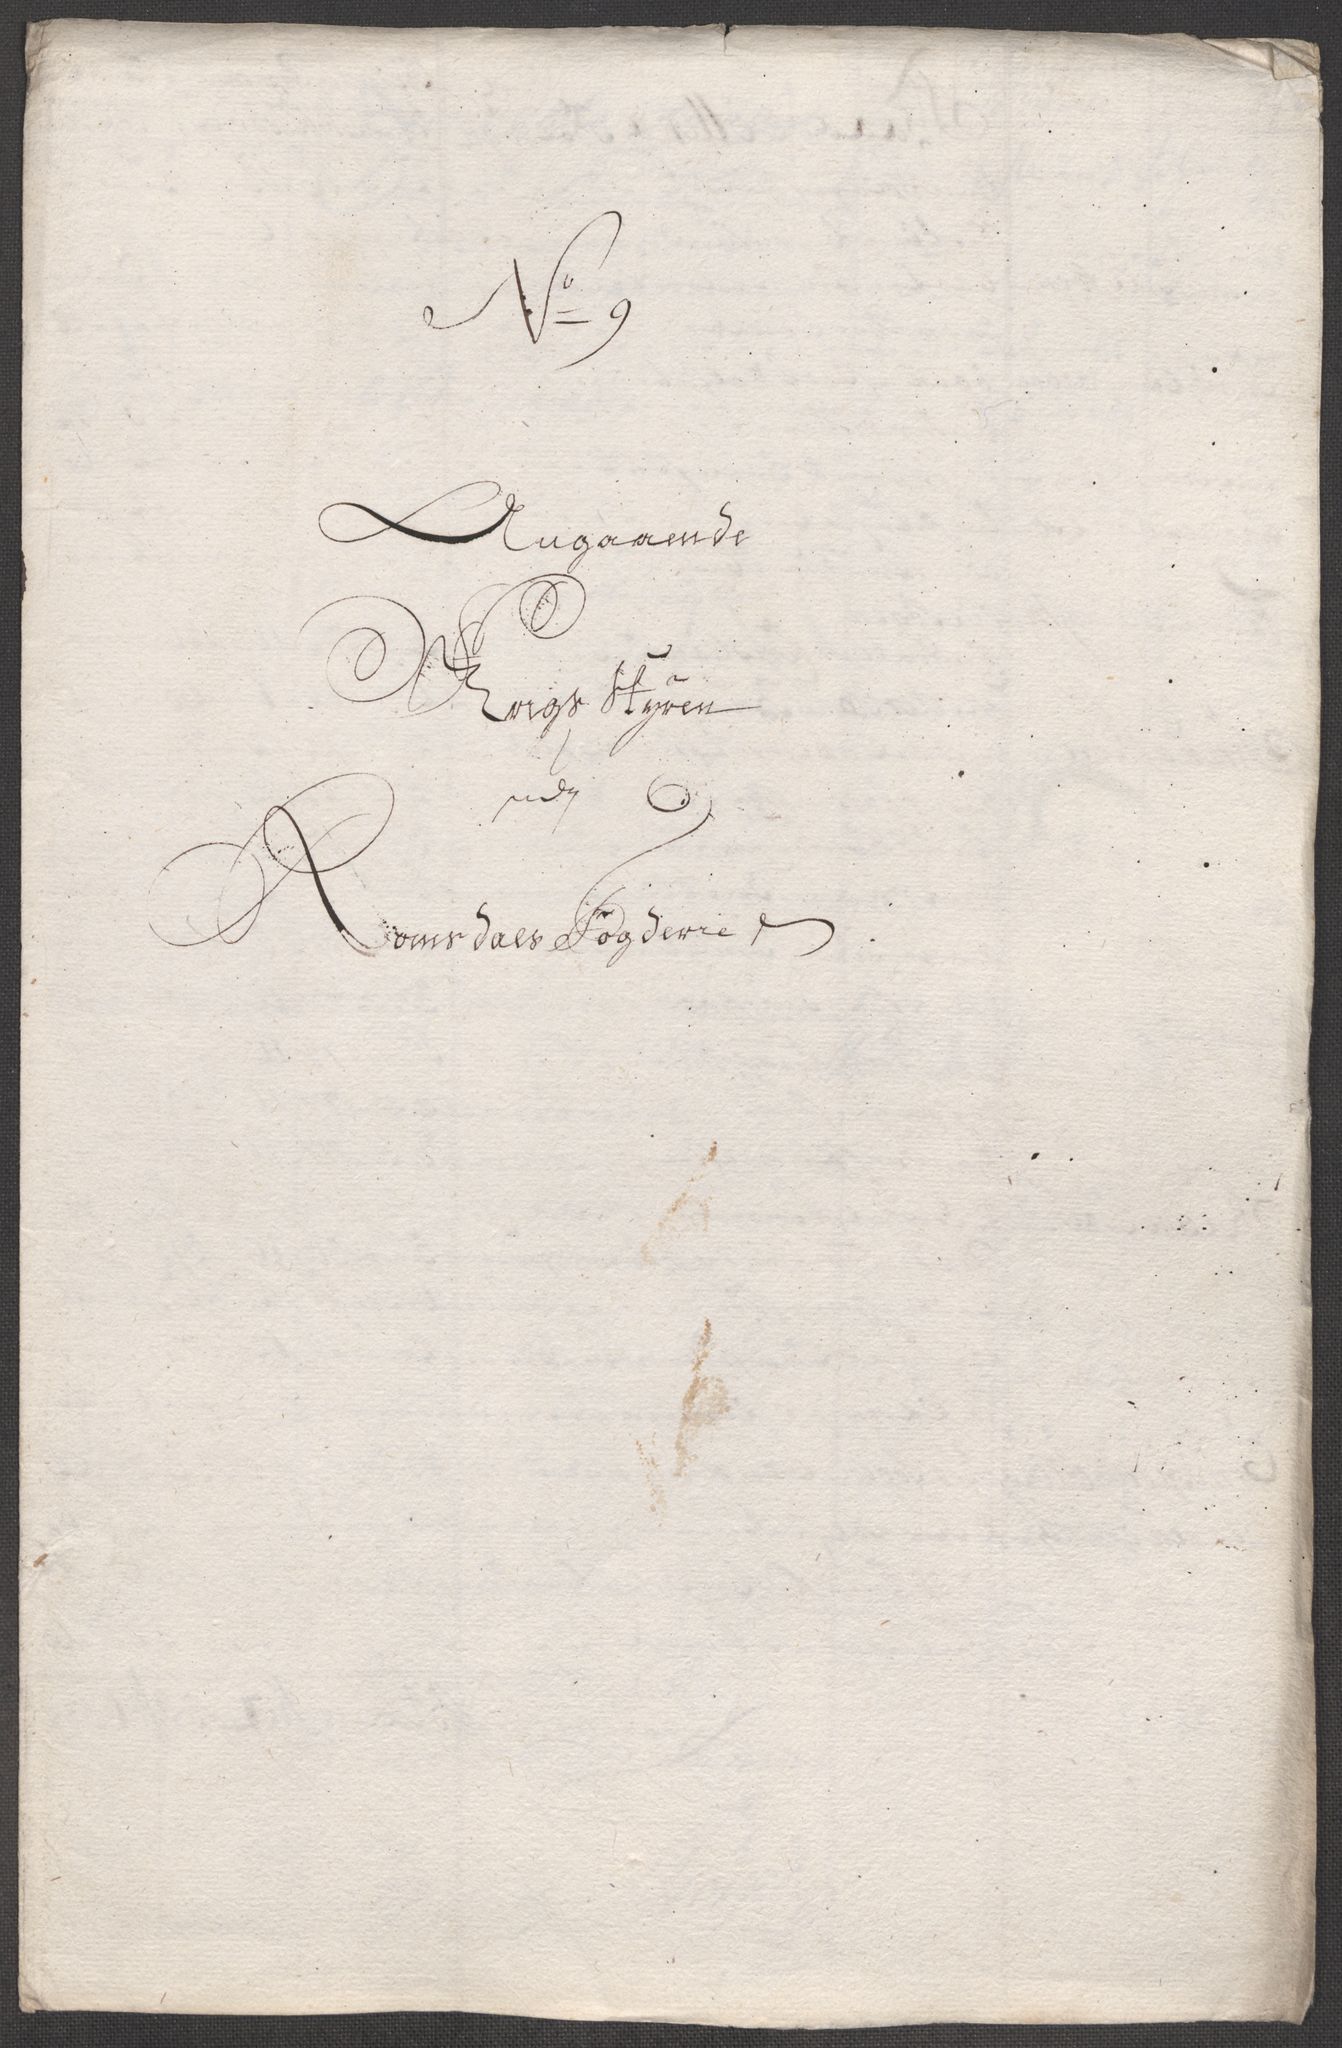 No 9
Angaaende
Krigs Styren
udj
Romsdals Fogderie